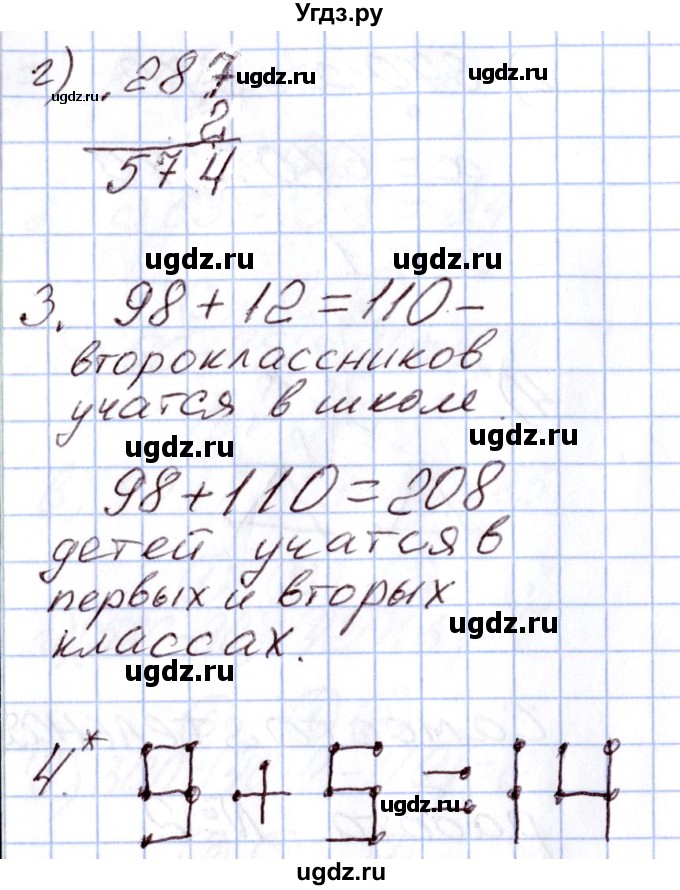 Угдз.ру
г) . 287
ugdz.ru ugdz.ru ugdz.ru
2
574
ugdz.ru ugdz.ru
3. 98 + 12 = 110 -
второклассников
учатся в школе.
ugdz.ru ugdz.ru
98 + 110 = 208
детей учатся в
первых и вторых
ugdz.ru
классах.
ugdz.ru
4.* 9 + 5 = 14
ugdz.ru
ugdz.ru